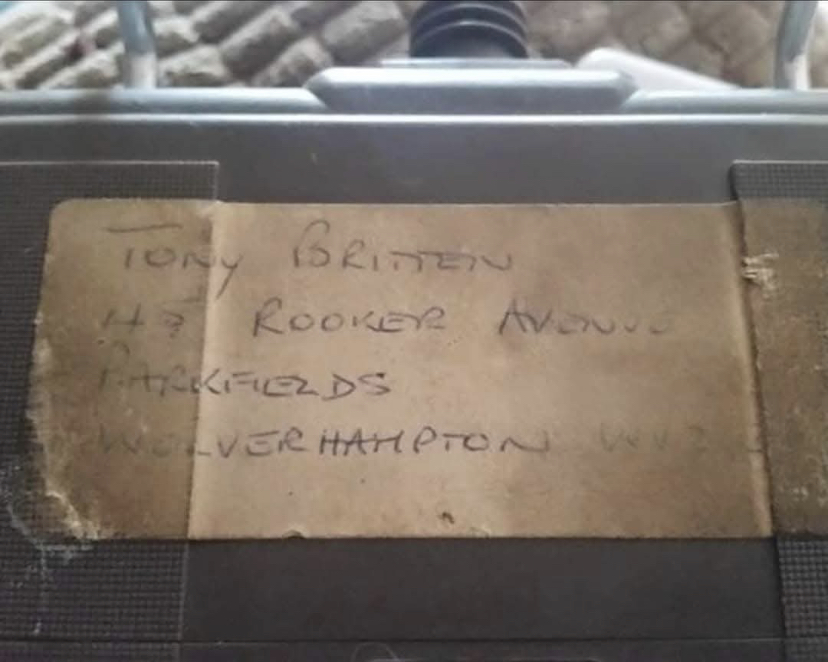 Tony BRITTEN
ROOKER AVENUE
PARKFIELDS
WOLVERHAMPTON